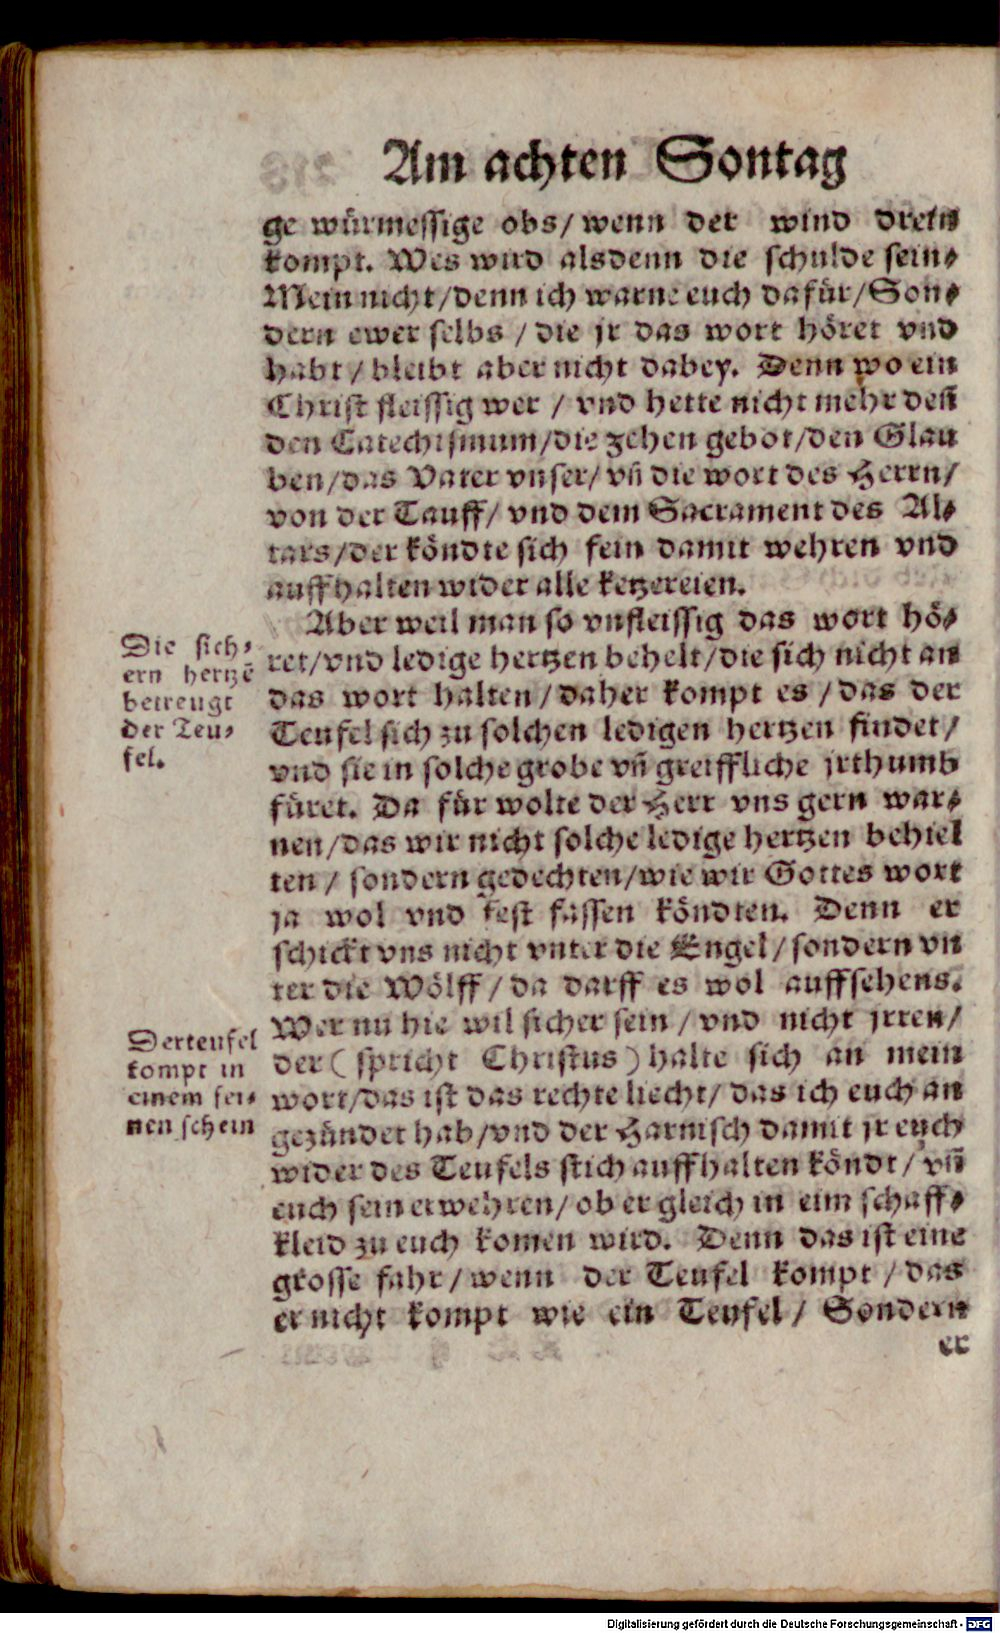 Am achten Sontag
ge würmessige obs/ wenn der wind drein
kompt. Wes wird alsdenn die schulde sein⸗
Mein nicht/denn ich warne euch dafür/Son⸗
dern ewer selbs / die jr das wort höret vnd
habt / bleibt aber nicht dabey. Denn wo ein
Christ fleissig wer / vnd hette nicht mehr deñ
den Catechismum/die zehen gebot/den Glau
ben/das Vater vnser/ vñ die wort des Herrn/
von der Tauff/ vnd dem Sacrament des Al⸗
tars/der köndte sich fein damit wehren vnd
auffhalten wider alle ketzereien.
Aber weil man so vnfleissig das wort hö⸗
ret/vnd ledige hertzen behelt/die sich nicht an
das wort halten/daher kompt es/das der
Teufel sich zu solchen ledigen hertzen findet/
vnd sie in solche grobe vñ greiffliche jrthumb
füret. Da für wolte der Herr vns gern war⸗
nen/das wir nicht solche ledige hertzen behiel
ten/ sondern gedechten/wie wir Gottes wort
ja wol vnd fest fassen köndten. Denn er
schickt vns nicht vnter die Engel/sondern vn
ter die Wölff/da darff es wol auffsehens.
Wer nu hie wil sicher sein / vnd nicht jrren/
der (spricht Christus) halte sich an mein
wort/das ist das rechte liecht/ das ich euch an
gezündet hab/vnd der Harnisch damit jr euch
wider des Teufels stich auffhalten köndt/ vñ
euch sein erwehren/ob er gleich in eim schaff⸗
kleid zu euch komen wird. Denn das ist eine
grosse fahr/wenn der Teufel kompt/das
er nicht kompt wie ein Teufel/ Sondern
er
Die sich⸗
ern hertzẽ
betreugt
der Teu⸗
fel.
Der teufel
kompt in
einem fei⸗
nen schein
Digitalisierung gefördert durch die Deutsche Forschungsgemeinschaft - DFG